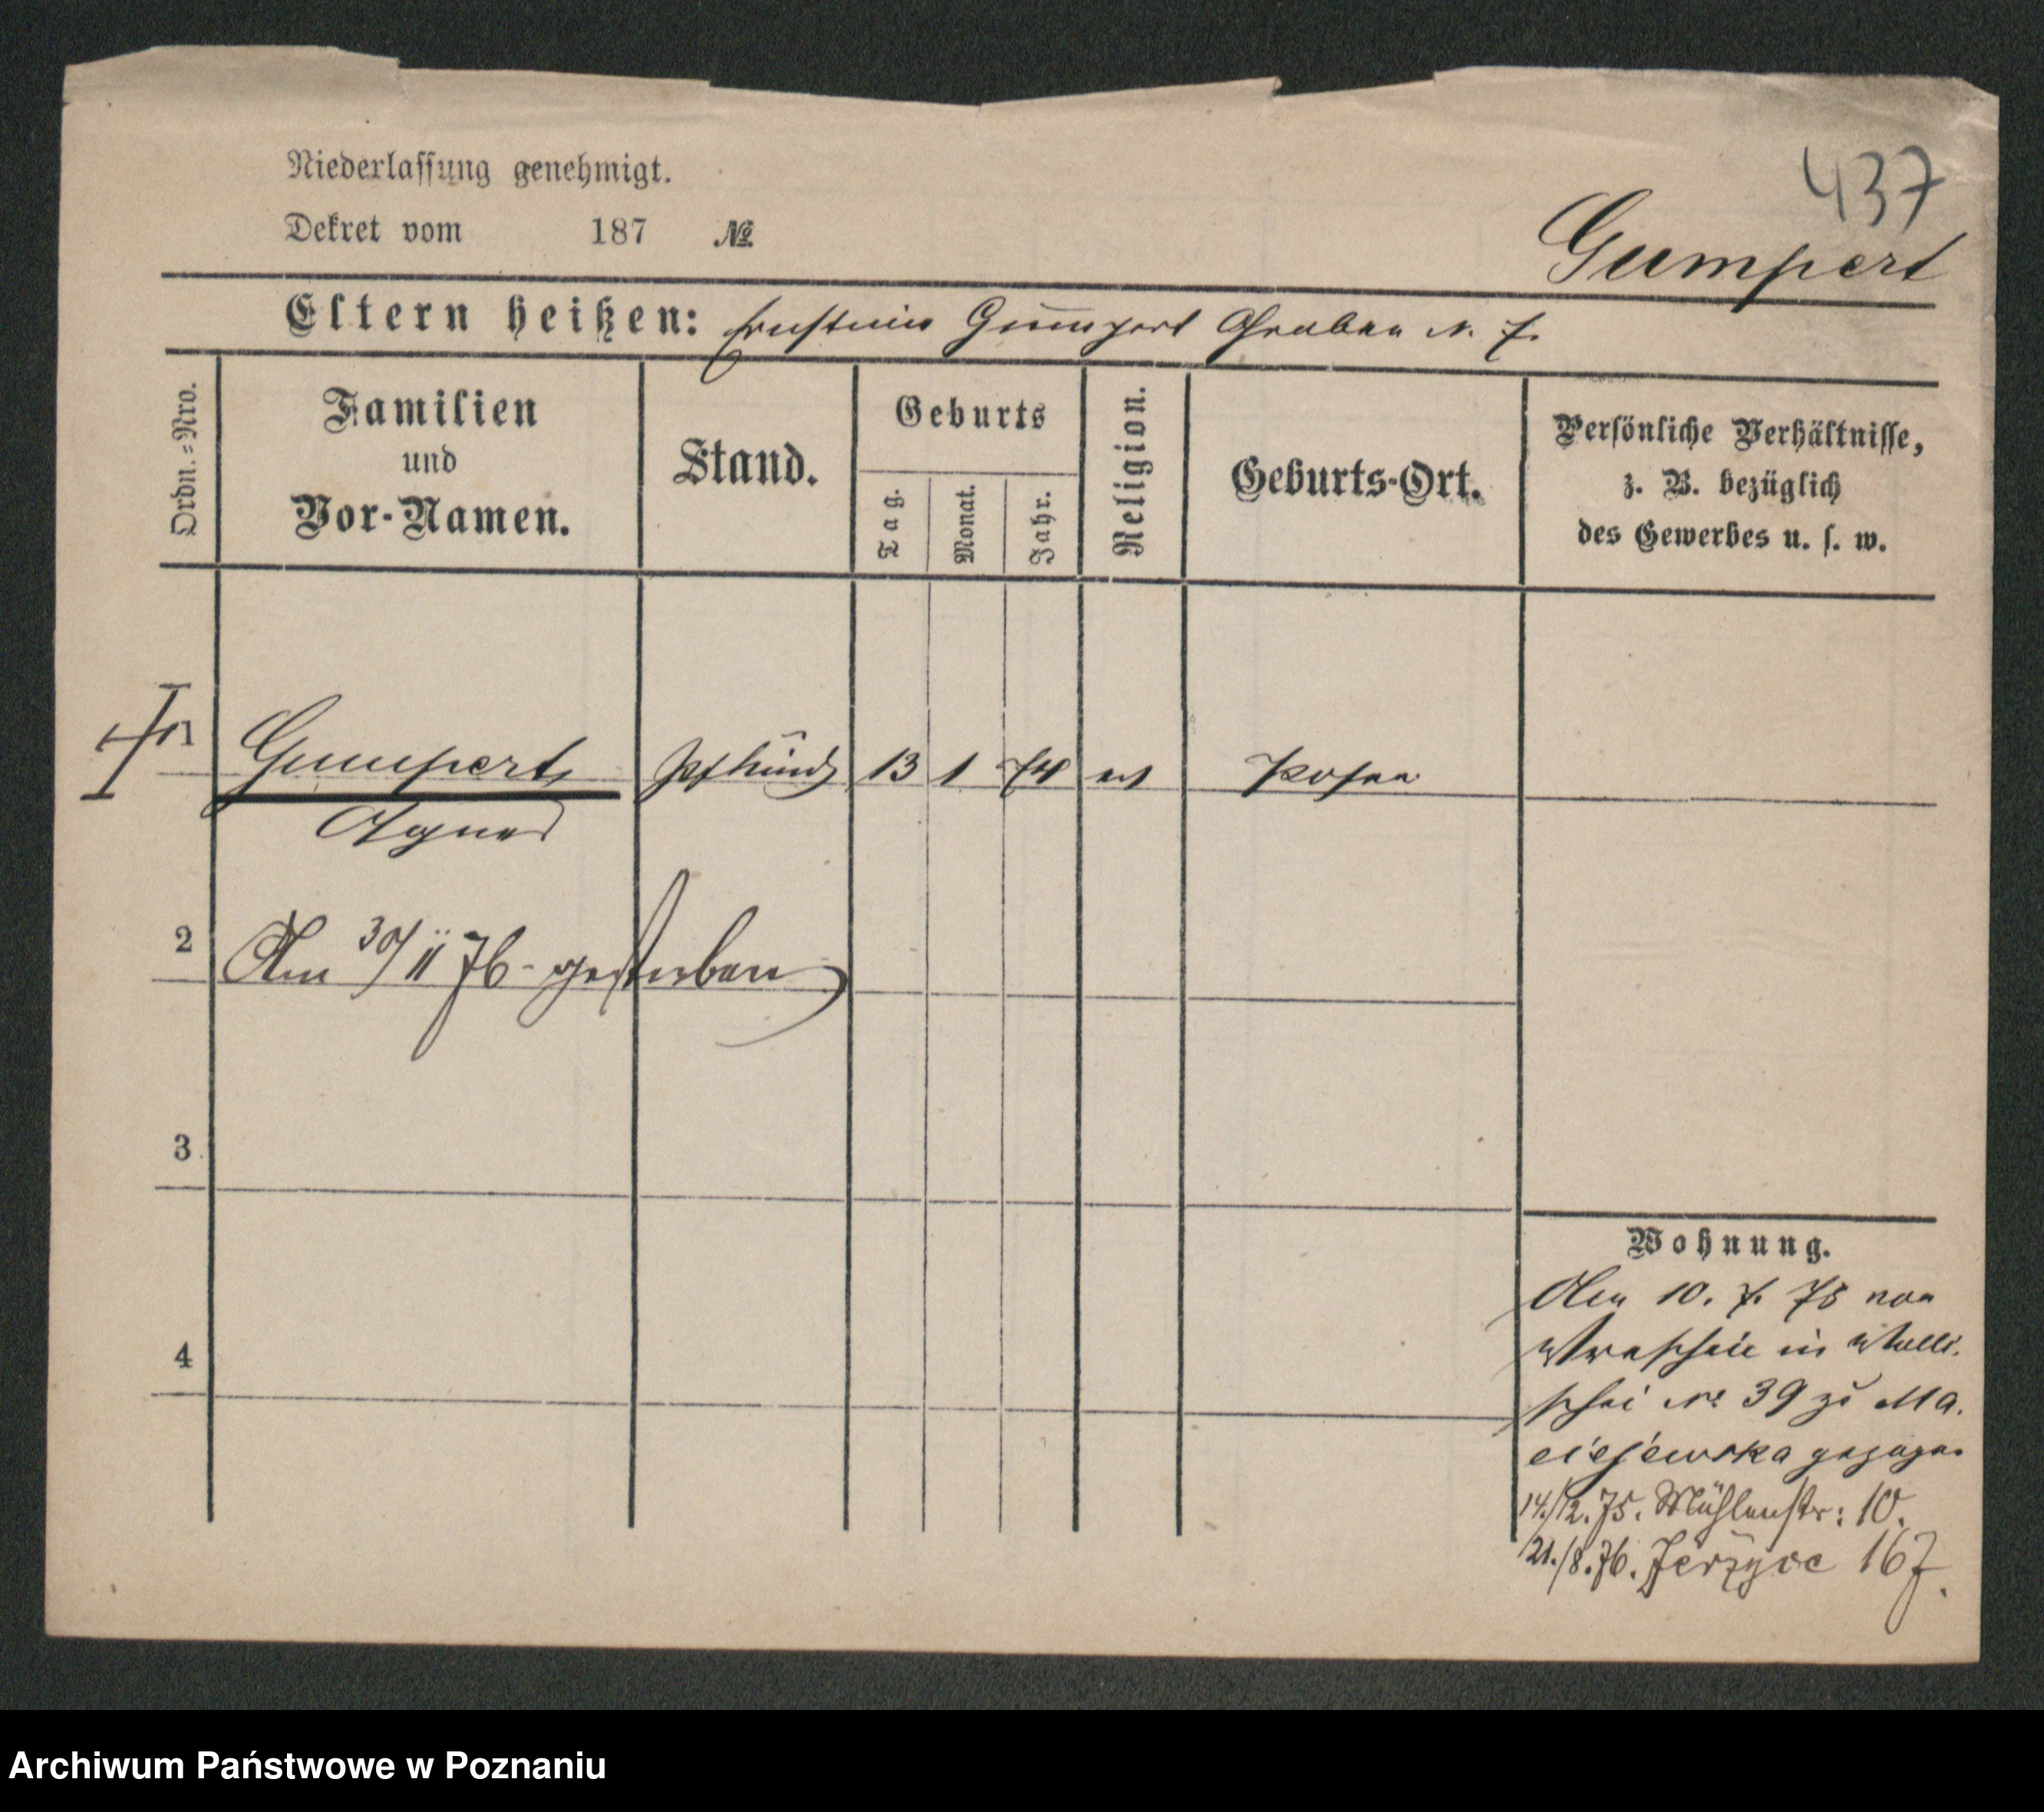 437
Niederlassung genehmigt.
Dekret vom 187 №
Gumpert
Eltern heißen: Ernstine Gumpert Graben N. 7.
Ordn.=Nro.
Familien
und
Vor-Namen.
Stand.
Geburts
Tag.
Monat.
Jahr.
Religion.
Geburts-Ort.
Persönliche Verhältnisse,
z. B. bezüglich
des Gewerbes u. s. w.
1 Gumpert 13 1 74 Posen
Agnes
2 Am 30/11 76 gestorben
3
4
Wohnung.
Am 10. 7. 75 von
Wreschen in Walli-
schei No 39 zu Ma-
ciejewska gezogen
14./12. 75. Mühlenstr: 10.
21./8. 76. Jerzyce 167.
Archiwum Państwowe w Poznaniu